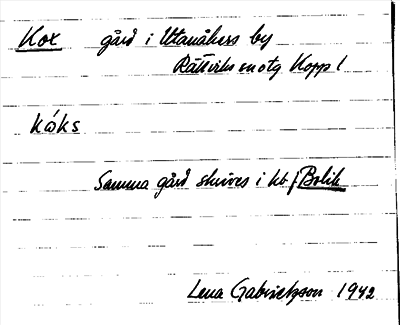 Kox gård i Utanåkers by
Rättviks sn otg Kopp l
kåks
Samma gård skrives i kb / Bolik
Lena Gabrielsson 1942